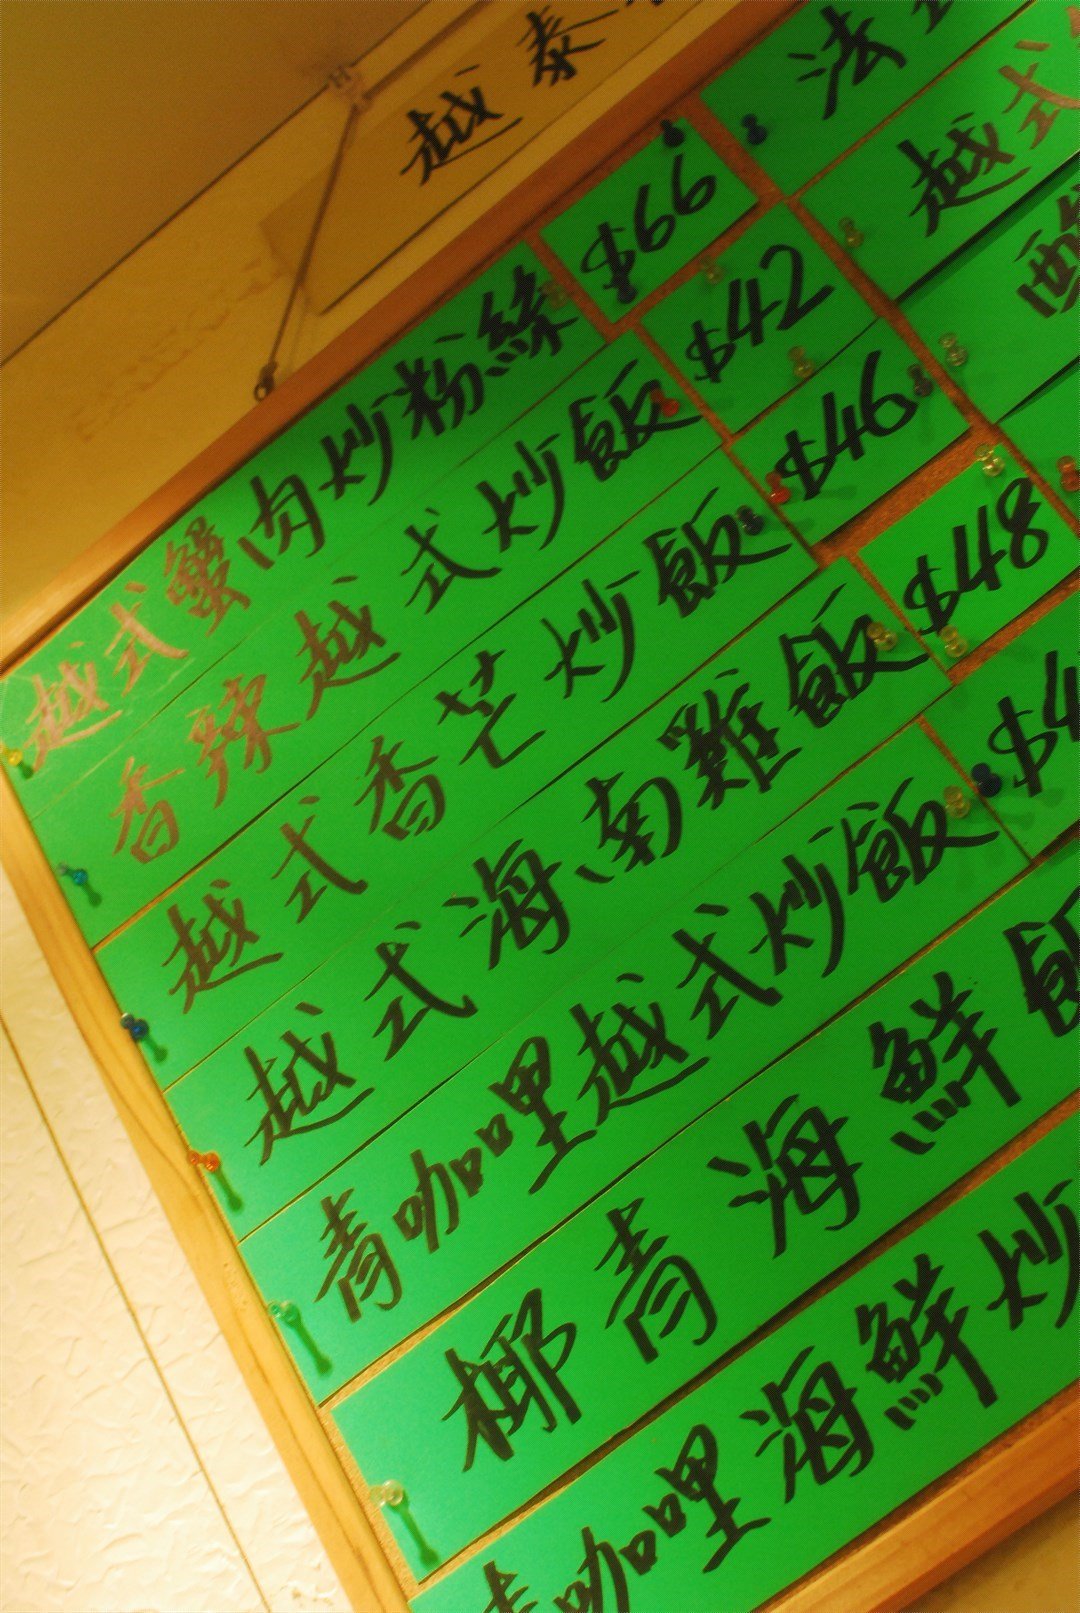 越泰
越式蟹肉炒粉絲 $66
香辣越式炒飯 $42
越式香芒炒飯 $46
越式海南雞飯 $48
青咖哩越式炒飯 $4
椰青海鮮飯
青咖哩海鮮炒
法
越式